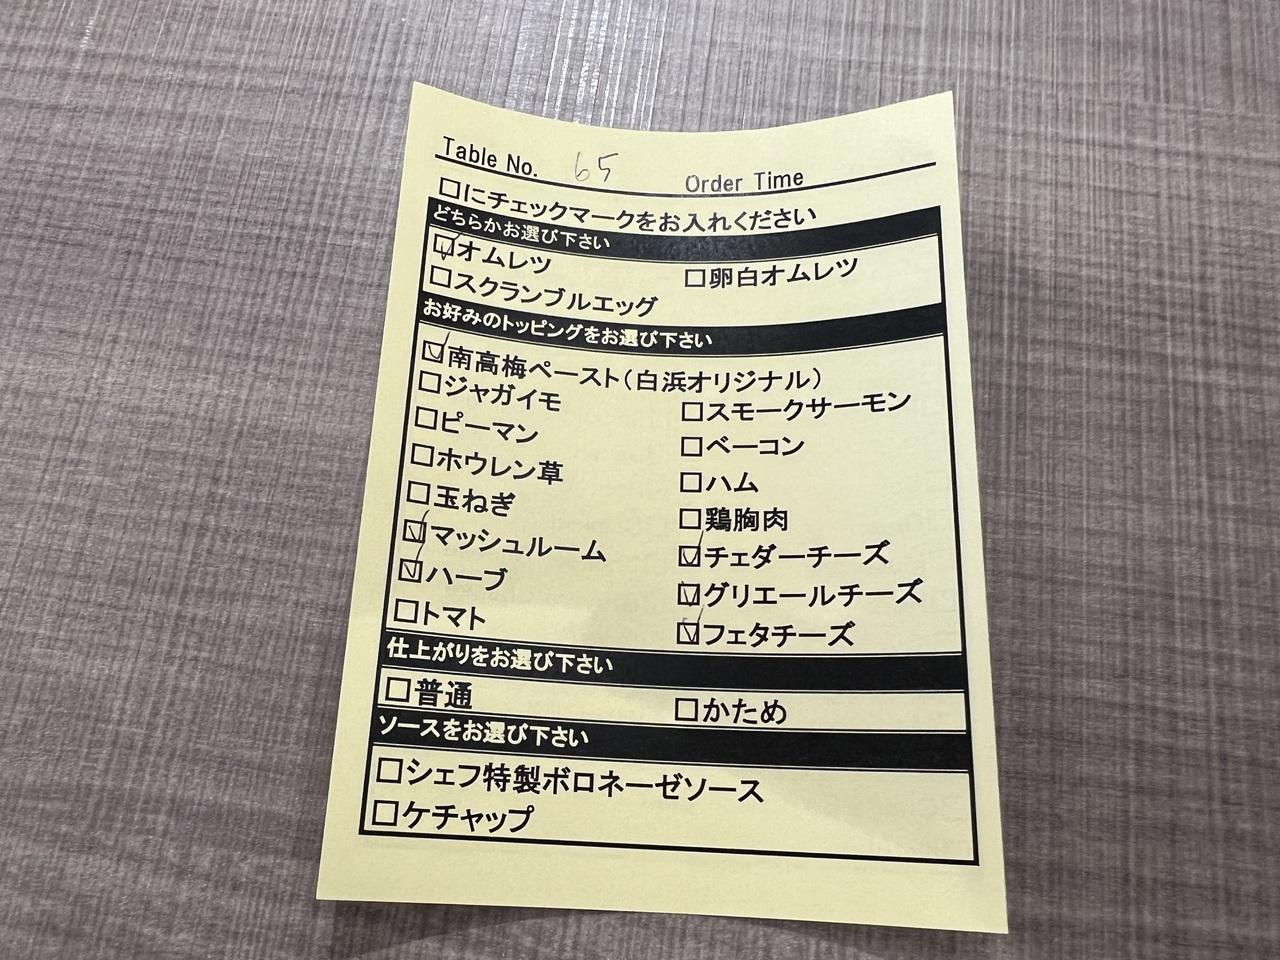 Table No. 65 Order Time
□にチェックマークをお入れください
どちらかお選び下さい
☑オムレツ □卵白オムレツ
□スクランブルエッグ
お好みのトッピングをお選び下さい
☑南高梅ペースト(白浜オリジナル)
□ジャガイモ □スモークサーモン
□ピーマン □ベーコン
□ホウレン草 □ハム
□玉ねぎ □鶏胸肉
☑マッシュルーム ☑チェダーチーズ
☑ハーブ ☑グリエールチーズ
□トマト ☑フェタチーズ
仕上がりをお選び下さい
□普通 □かため
ソースをお選び下さい
□シェフ特製ボロネーゼソース
□ケチャップ